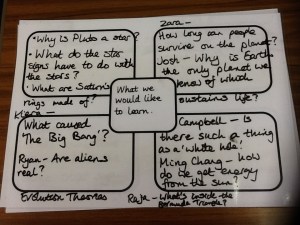 • Why is Pluto a star?
• What do the star
signs have to do with
the stars?
• What are Saturn's
rings made of?
Kiera -
What caused
'The Big Bang'?
Ryan - Are aliens
real?
Evolution Theories
What we
would like
to learn.
Zara -
How long can people
survive on the planet?
Josh - Why is Earth
the only planet we
know of which
sustains life?
Campbell - Is
there such a thing
as a 'white hole'?
Ming Chang - how
do we get energy
from the sun?
Raja - What's inside the
Bermuda Triangle?